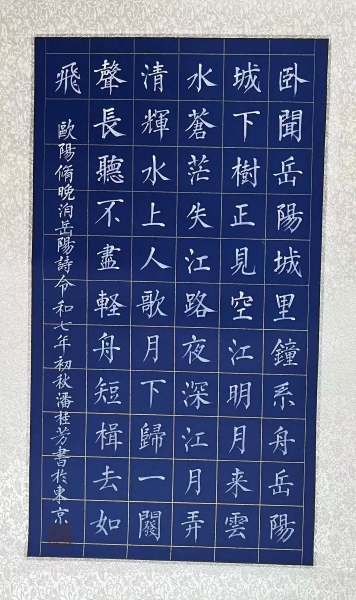 卧聞岳陽城里鐘系舟岳陽
城下樹正見空江明月来雲
水蒼茫失江路夜深江月弄
清輝水上人歌月下歸一闋
聲長聽不盡軽舟短楫去如
飛
歐陽脩晚泊岳陽詩令和七年初秋潘桂芳書於東京